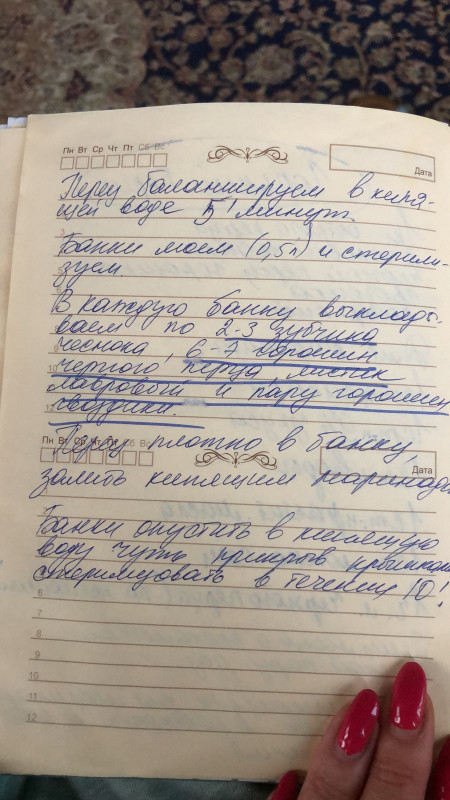 Пн Вт Ср Чт Пт Сб Вс
Дата
Перец баланшируем в кипя-
щей воде 5 минут.
Банки моем (0,5л) и стерили-
зуем.
В каждую банку выклады-
ваем по 2-3 зубчика
чеснока, 6-7 горошин
черного перца, листик
лавровый и пару горошен
гвоздики.
Пн Вт Ср Чт Пт Сб Вс
Дата
Перец плотно в банку,
залить кипящим маринадом
Банки опустить в кипящую
воду чуть прикрыв крышками
стерилизовать в течении 10!
6
7
8
9
10
11
12